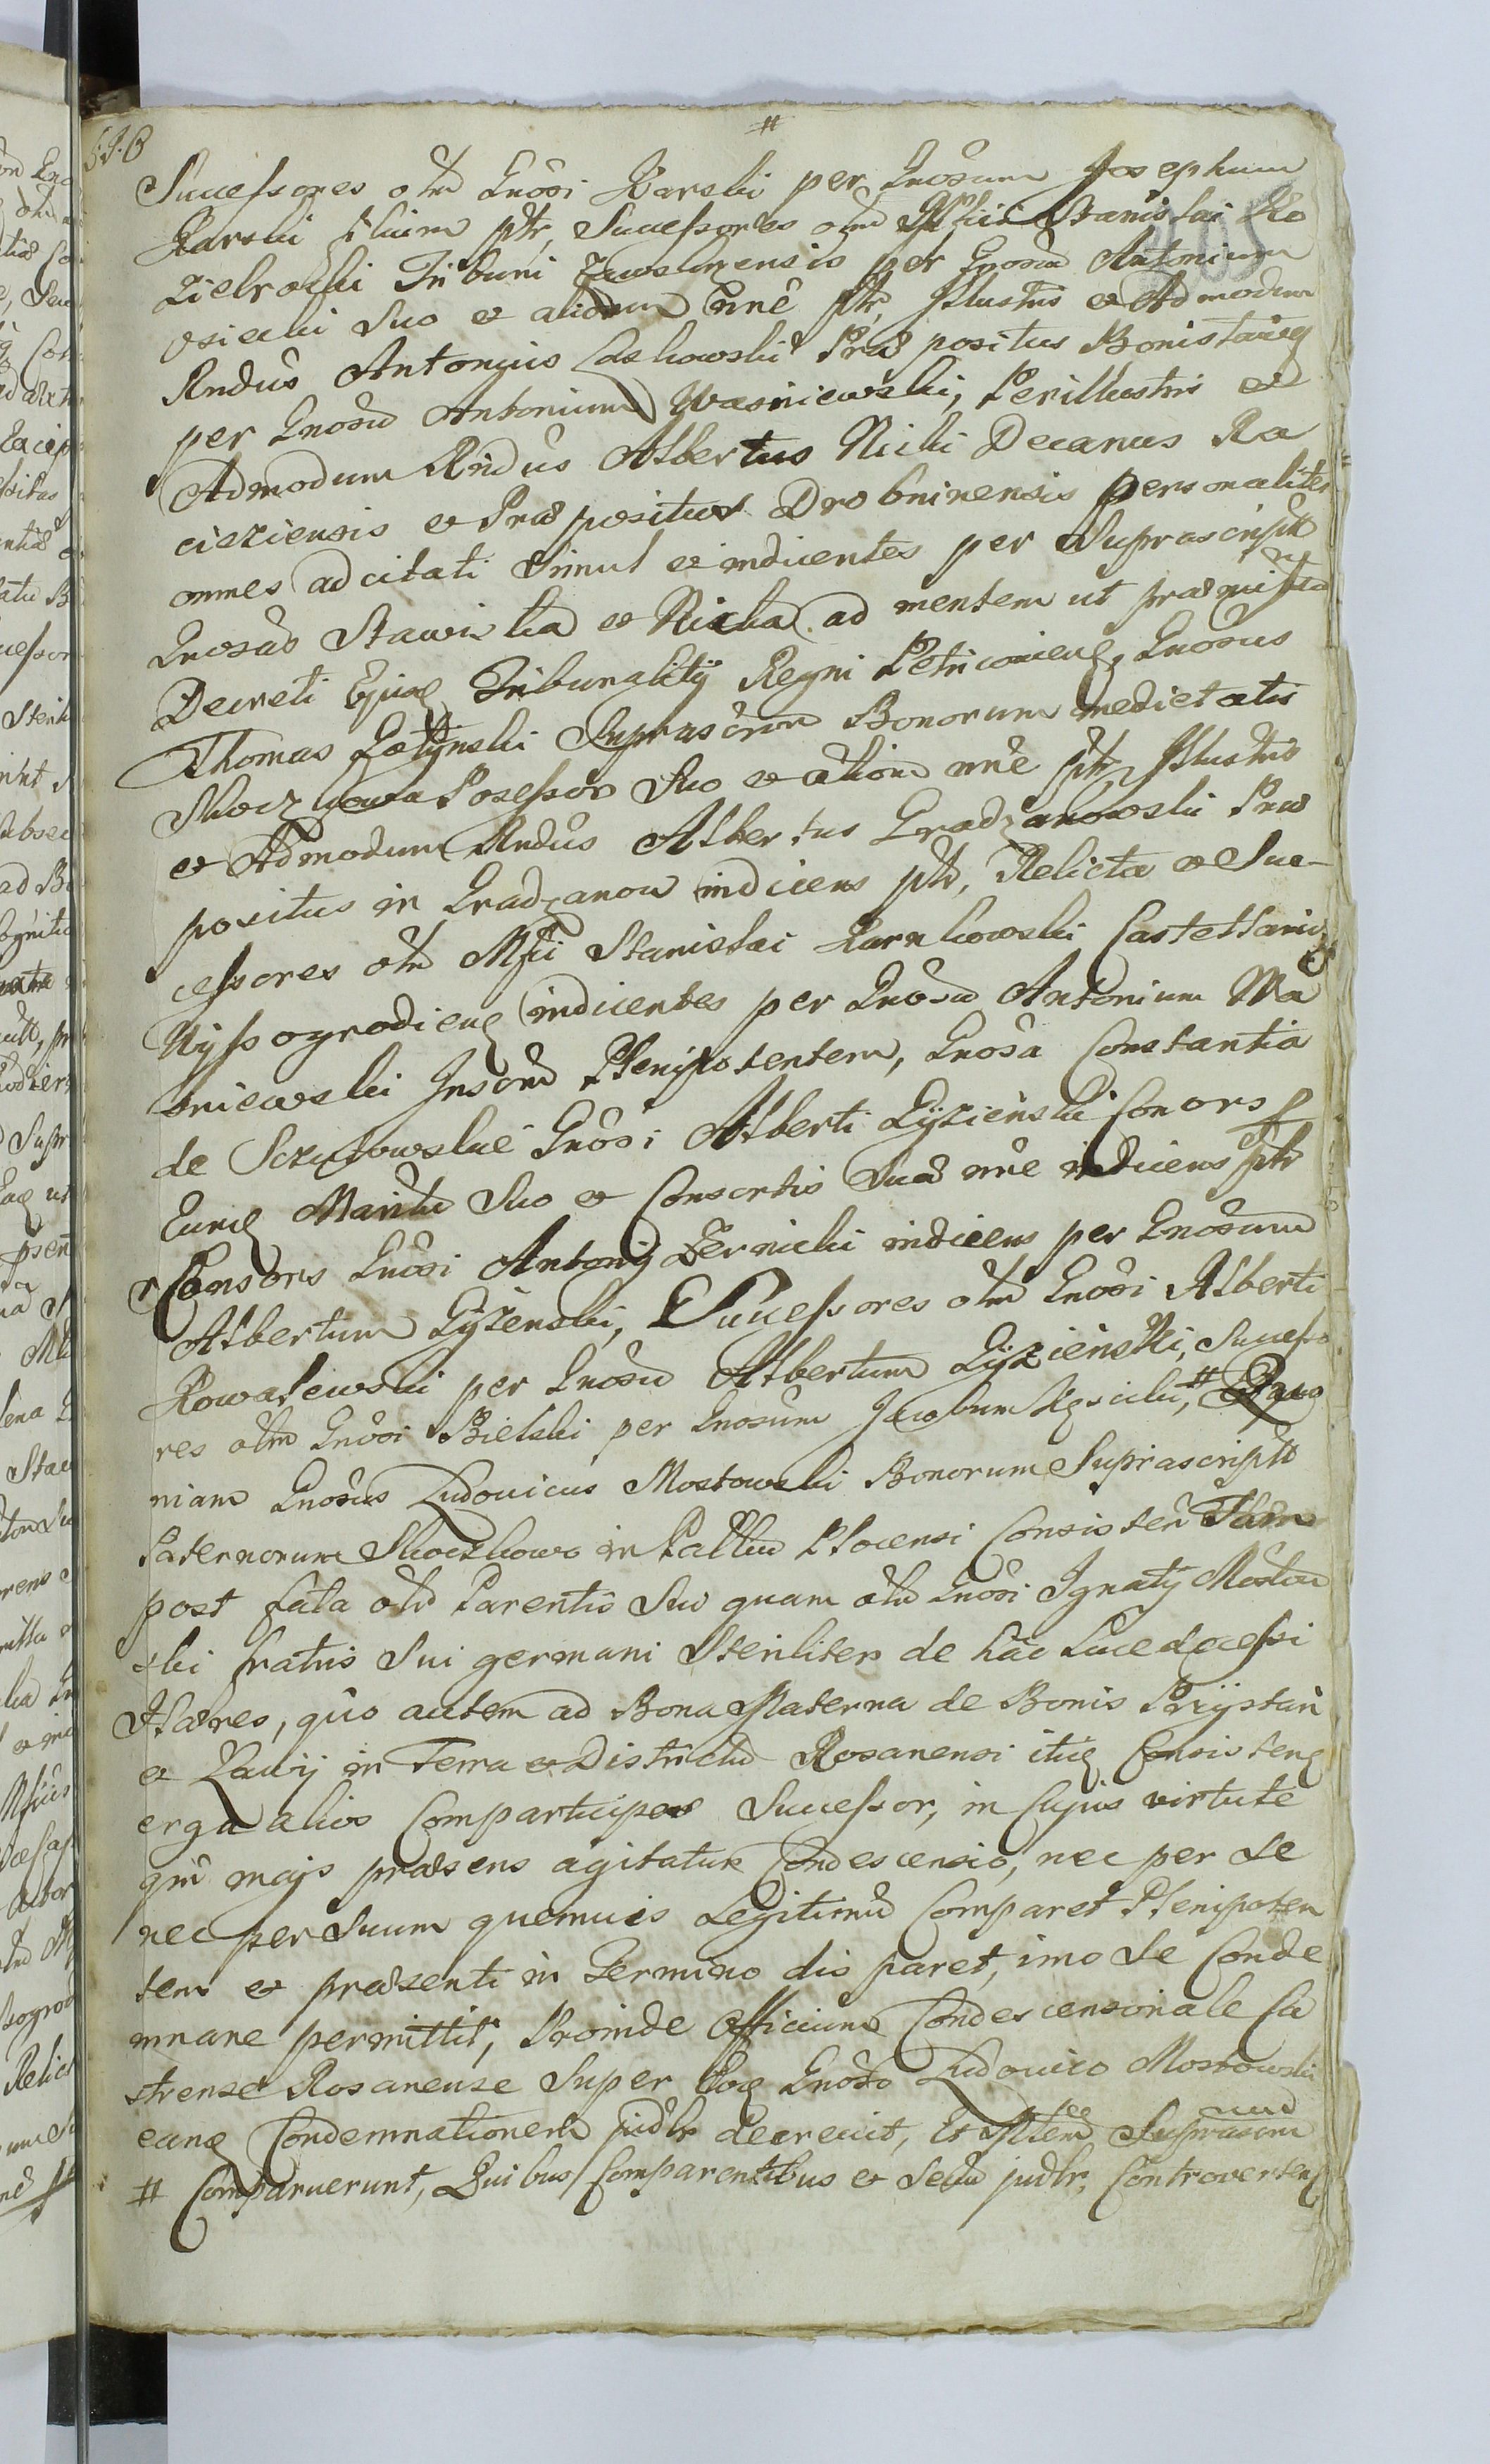 #
Successores olim Gnosi Karski per Gnosum Josephum
Karski filium ptr, Successores olim Mfici Stanislai Ko
ziebrodzki Tribuni Zawskrzensis per Gnosum Antonium
Osiecki Suo et aliorum nne ptr, Illustris et Admodum
Rndus Antonius Laskowski Præpositus Bonislaviens
per Gnosum Antonium Wasniewski, Perillustris et
Admodum Rndus Albertus Nicki Decanus Ra
ciąziensis et Præpositus Drobninensis personaliter
omnes adcitati Simul et indicentes per Suprascriptos
Gnosas Stawiska et Nicka ad mentem ut præmissu
Decreti Ejusq Tribunalitij Regni Petricoviens, Gnosus
Thomas Zatynski Suprascrum Bonorum medietatis
Skoczkowa Possessor Suo et aliorum nne ptr, Illustris
et Admodum Rndus Albertus Gradzanowski Præ
positus in Gradzanow indicens ptr, Relicta et Suc-
cessores olim Mfci Stanislai Karnkowski Castellani
Wyssogrodiens indicentes per Gnosum Antonium Wa
sniewski Insorum Plenipotentem, Gnosa Constantia
de Szczutowskie Gnosi Alberti Zyzienski Consors
Eamq Maritu Suo et Consortis Suæ nne indicens ptr
Consors Gnosi Antonij Zernicki indicens per Gnosum
Albertum Zyzenski, Successores olim Gnosi Alberti
Kowalewski per Gnosum Albertum Zyzienski, Successo
res olim Gnosi Bielski per Gnosum Jacobum Kęsicki, # Quo
niam Gnosus Ludovicus Mostowski Bonorum Suprascriptt
Paternorum Skoczkowo in Pallu Plocensi Consisten Tam
post fata olim Parentis Sui quam olim Gnosi Ignatij Mostow
ski fratris Sui germani Steriliter de hac Luce decessi
Hæres, quo autem ad Bona Materna de Bonis Przystań
et Zawij in Terra et Districtu Rosanensi itiq Consistens
erga alios Comparticipes Successor, in Cujus virtute
qui majs præsens agitatur Condescensio, nec per Se
nec per Suum quemvis Legitimum Comparet Plenipoten
tem et præsenti in Termino dis paret, imo Se Conde
mnare permittit, Proinde Officium Condescensionale Ca
strense Rosanense Super Eoq Gnoso Ludovico Mostowski
eamq Condemnationem judlr decrevit, Et Suprascrm
# Comparuerunt, Quibus Comparentibus et Secu judlr, Controverten